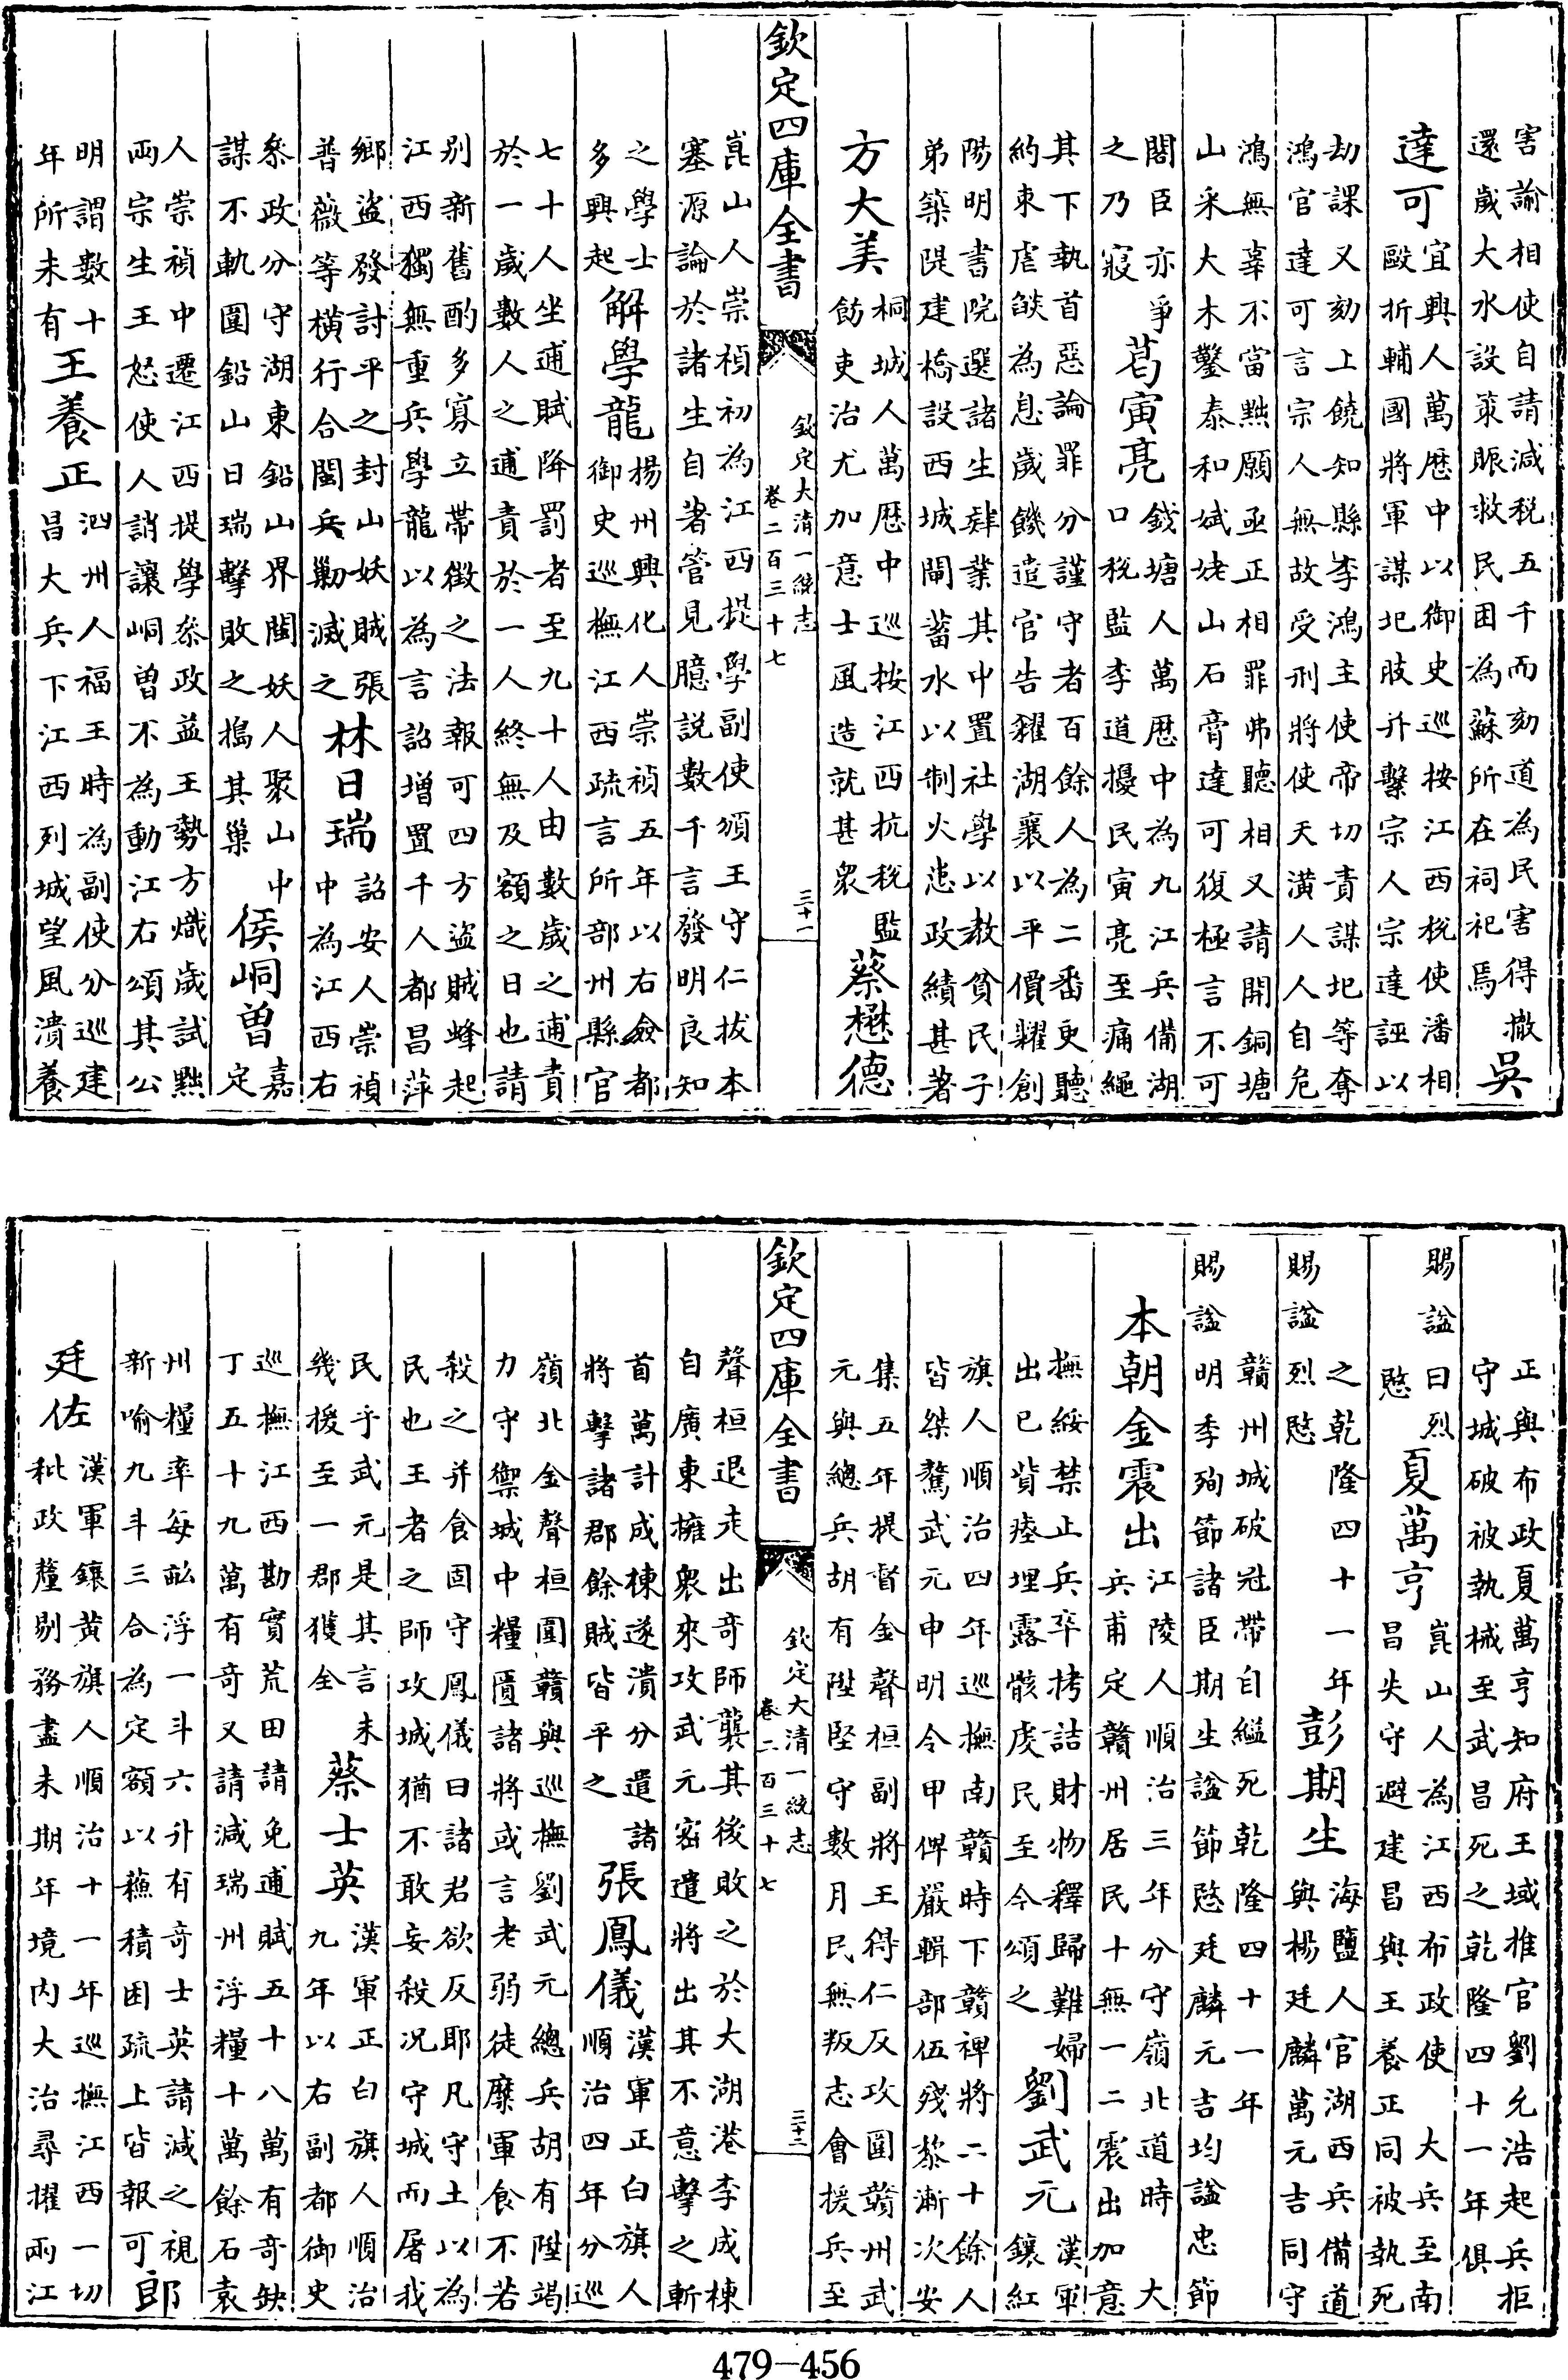 害諭相使自請減税五千而劾道為民害得撤
還歲大水設策賑救民困為蘇所在祠祀焉
吳
達可
宜興人萬厯中以御史巡按江西税使潘相
毆折輔國將軍謀圯肢并繫宗人宗達誣以
劫課又劾上饒知縣李鴻主使帝切責謀圯等奪
鴻官達可言宗人無故受刑將使天潢人人自危
鴻無辜不當黜願亟正相罪弗聽相又請開銅塘
山采大木鑿泰和斌姥山石膏達可復極言不可
閣臣亦爭
之乃寢
葛寅亮
錢塘人萬厯中為九江兵備湖
口税監李道擾民寅亮至痛繩
其下執首惡論罪分謹守者百餘人為二番更聽
約束虐燄為息歲饑遣官告糴湖襄以平價糶創
陽明書院選諸生肄業其中置社學以教貧民子
弟築隄建橋設西城閘蓄水以制火患政績甚著
方大美
桐城人萬厯中巡按江西抗税監
飭吏治尤加意士風造就甚衆
蔡懋德
欽定四庫全書
欽定大清一統志
卷二百三十七
三十一
崑山人崇禎初為江西提學副使頒王守仁拔本
塞源論於諸生自著管見臆説數千言發明良知
之學士
多興起
解學龍
揚州興化人崇禎五年以右僉都
御史巡撫江西疏言所部州縣官
七十人坐逋賦降罰者至九十人由數歲之逋責
於一歲數人之逋責於一人終無及額之日也請
别新舊酌多寡立帶徵之法報可四方盜賊蜂起
江西獨無重兵學龍以為言詔增置千人都昌萍
鄉盜發討平之封山妖賊張
普薇等橫行合閩兵勦滅之
林日瑞
詔安人崇禎
中為江西右
參政分守湖東鉛山界閩妖人聚山中
謀不軌圍鉛山日瑞擊敗之搗其巢
侯峒曾
嘉
定
人崇禎中遷江西提學參政益王勢方熾歲試黜
兩宗生王怒使人誚讓峒曾不為動江右頌其公
明謂數十
年所未有
王養正
泗州人福王時為副使分巡建
昌大兵下江西列城望風潰養
正與布政夏萬亨知府王域推官劉允浩起兵拒
守城破被執械至武昌死之乾隆四十一年俱
賜諡曰烈
愍
夏萬亨
崑山人為江西布政使大兵至南
昌失守避建昌與王養正同被執死
之乾隆四十一年
賜諡烈愍
彭期生
海鹽人官湖西兵備道
與楊廷麟萬元吉同守
贛州城破冠帶自縊死乾隆四十一年
賜諡明季殉節諸臣期生諡節愍廷麟元吉均諡忠節
本朝金震出
江陵人順治三年分守嶺北道時大
兵甫定贛州居民十無一二震出加意
撫綏禁止兵卒拷詰財物釋歸難婦
出已貲瘞埋露骸虔民至今頌之
劉武元
漢軍
鑲紅
旗人順治四年巡撫南贛時下贛裨將二十餘人
皆桀驁武元申明令甲俾嚴輯部伍殘黎漸次安
集五年提督金聲桓副將王得仁反攻圍贛州武
元與總兵胡有陞堅守數月民無叛志會援兵至
欽定四庫全書
欽定大清一統志
卷二百三十七
三十二
聲桓退走出奇師襲其後敗之於大湖港李成棟
自廣東擁衆來攻武元密遣將出其不意擊之斬
首萬計成棟遂潰分遣諸
將擊諸郡餘賊皆平之
張鳳儀
漢軍正白旗人
順治四年分巡
嶺北金聲桓圍贛與巡撫劉武元總兵胡有陞竭
力守禦城中糧匱諸將或言老弱徒糜軍食不若
殺之并食固守鳳儀曰諸君欲反耶凡守土以為
民也王者之師攻城猶不敢妄殺况守城而屠我
民乎武元是其言未
幾援至一郡獲全
蔡士英
漢軍正白旗人順治
九年以右副都御史
巡撫江西勘實荒田請免逋賦五十八萬有奇缺
丁五十九萬有奇又請減瑞州浮糧十萬餘石袁
州糧率每畝浮一斗六升有奇士英請減之視
新喻九斗三合為定額以蘓積困疏上皆報可
郎
廷佐
漢軍鑲黃旗人順治十一年巡撫江西一切
秕政釐剔務盡未期年境内大治尋擢兩江
479-456